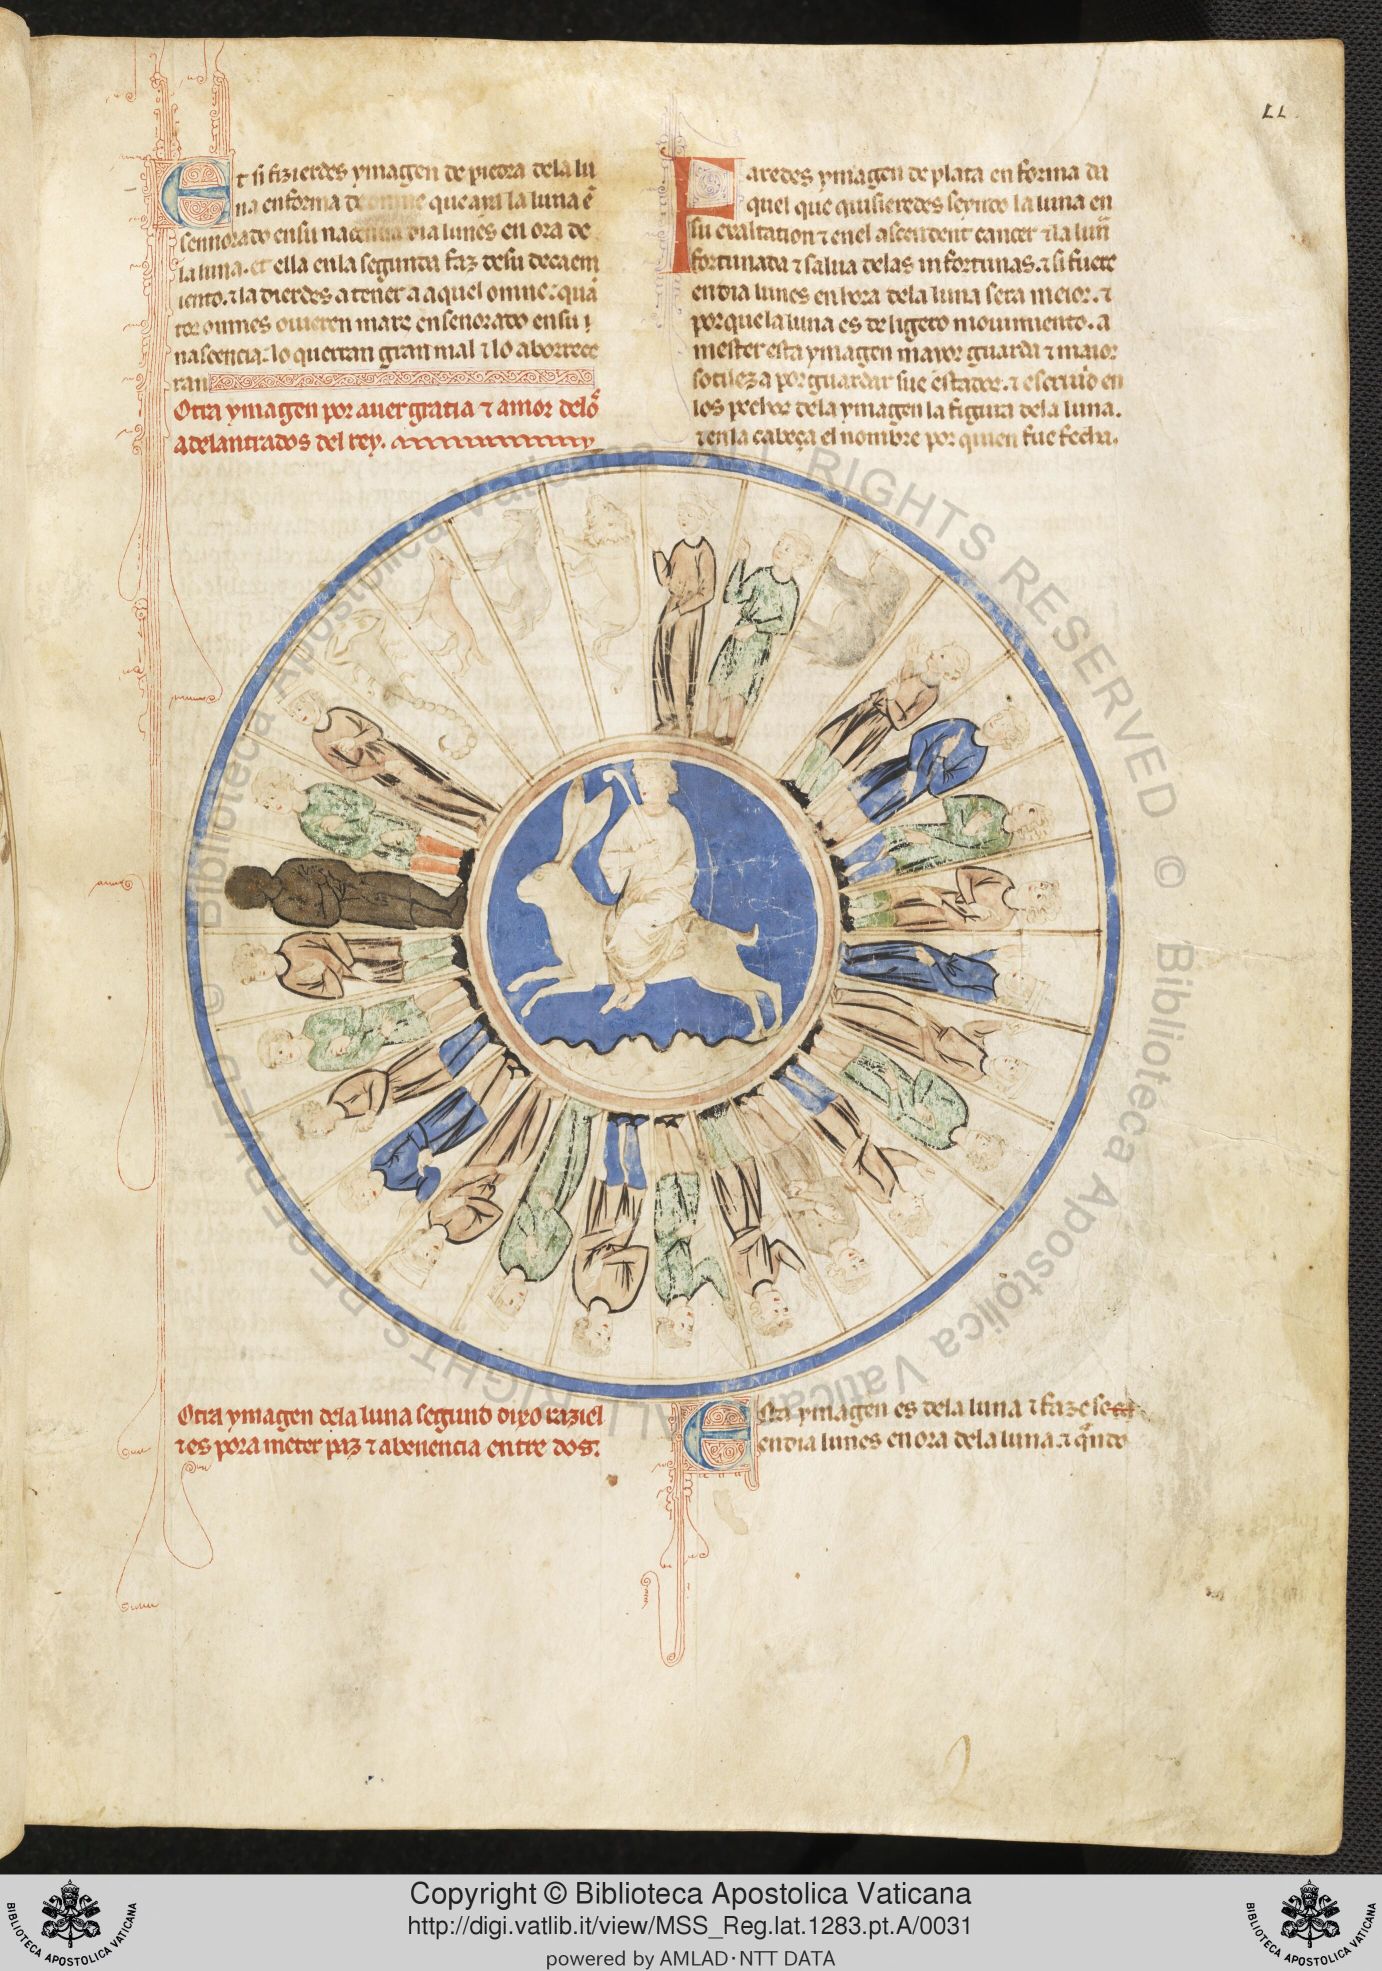 LL
Et si fizierdes ymagen de piedra dela lu
na en forma de omne que aya la luna e͂
sennorado en su nacencia dia lunes en ora de
la luna. et ella en la segunda faz de su decaem
iento. ⁊ la dierdes a tener a aquel omne: quã
tos omnes ouieren marz ensenorado en su
nascencia: lo querran gran mal ⁊ lo aborrece
ran
Otra ymagen por auer gratia ⁊ amor delõ
adelantrados del rey.
Faredes ymagen de plata en forma da
quel que quisieredes seyndo la luna en
su exaltation ⁊ en el ascendent cancer ⁊ la lun̄
fortunada ⁊ salua delas infortunas. ⁊ si fuere
en dia lunes en hora dela luna sera meior. ⁊
por que la luna es de ligero mouimiento. a
mester esta ymagen mayor guarda ⁊ maior
sotileza por guardar sue estados. ⁊ escriuid en
los pechos dela ymagen la figura dela luna.
⁊ en la cabeça el nombre por quien fue fecha.
Otra ymagen dela luna segund dixo raziel
⁊ es pora meter paz ⁊ abenencia entre dos:
Esta ymagen es dela luna ⁊ faze se
en dia lunes en ora dela luna. ⁊ q̃ndo
© Biblioteca Apostolica Vaticana ALL RIGHTS RESERVED © Biblioteca Apostolica Vaticana ALL RIGHTS RESERVED
BIBLIOTECA APOSTOLICA VATICANA
Copyright © Biblioteca Apostolica Vaticana
http://digi.vatlib.it/view/MSS_Reg.lat.1283.pt.A/0031
powered by AMLAD·NTT DATA
BIBLIOTECA APOSTOLICA VATICANA